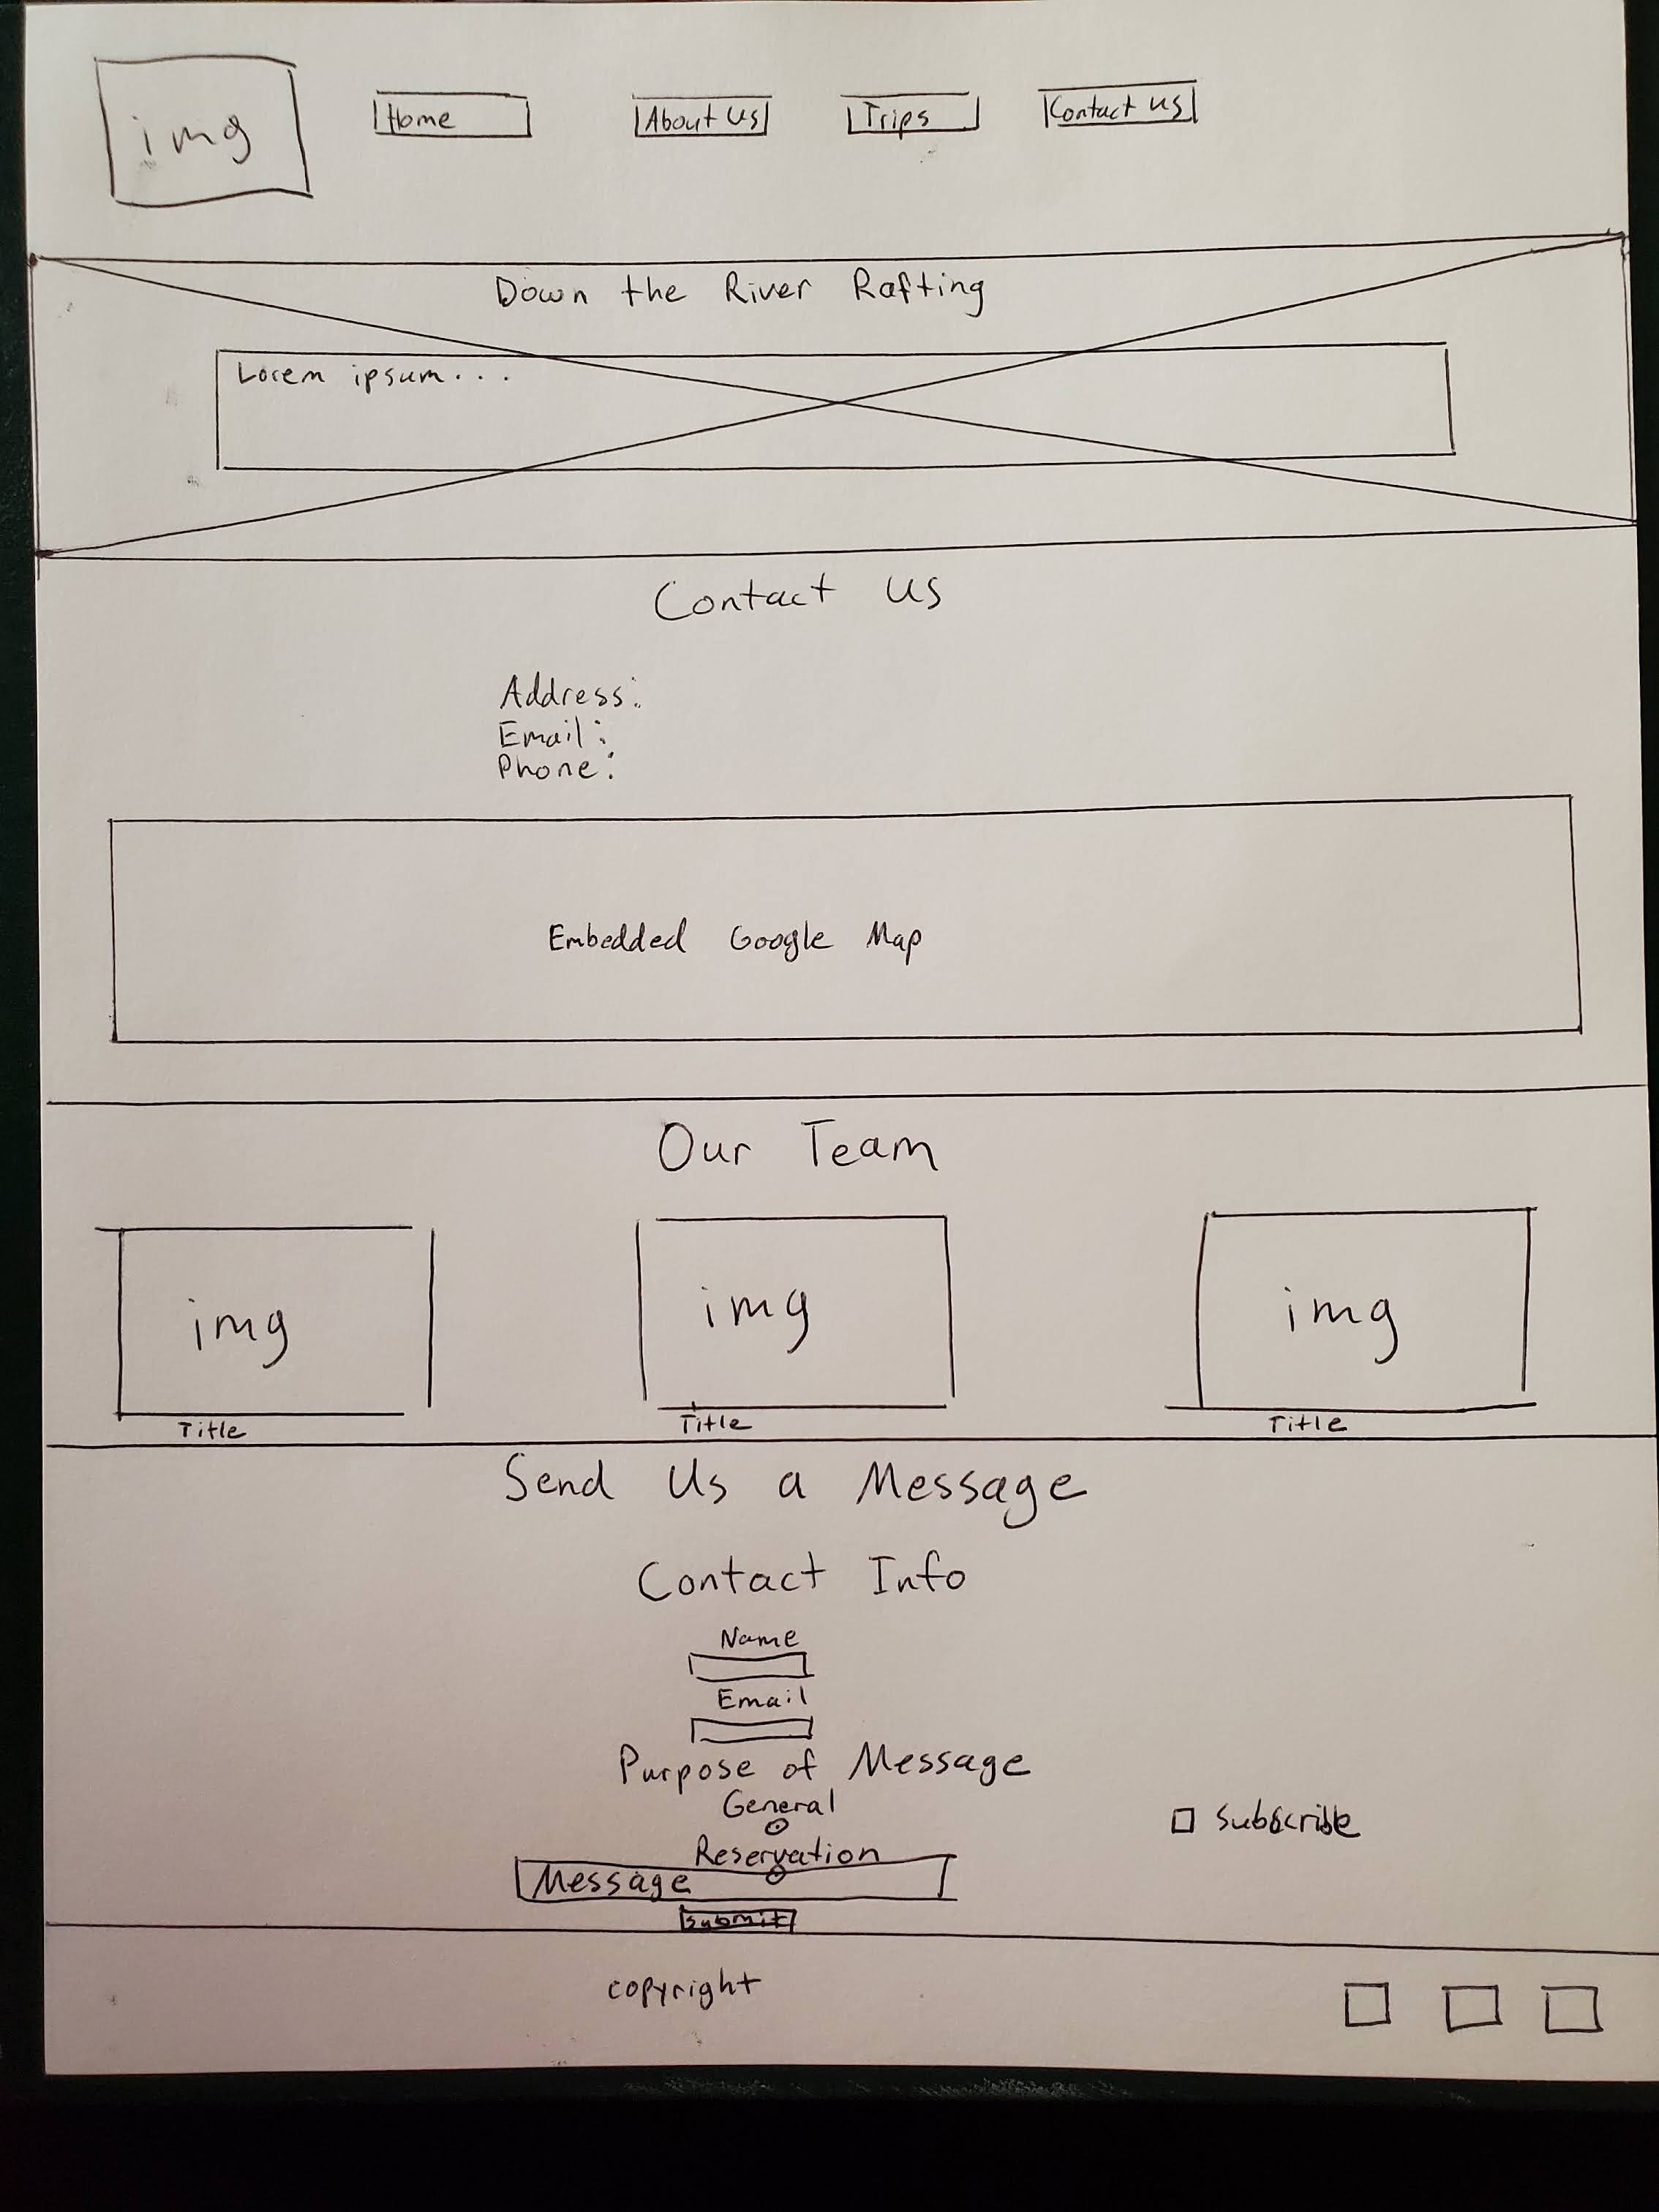 img
Home About Us Trips Contact Us
Down the River Rafting
Lorem ipsum...
Contact Us
Address:
Email:
Phone:
Embedded Google Map
Our Team
img img img
Title Title Title
Send Us a Message
Contact Info
Name
Email
Purpose of Message
General
Subscribe
Reservation
Message
Submit
copyright